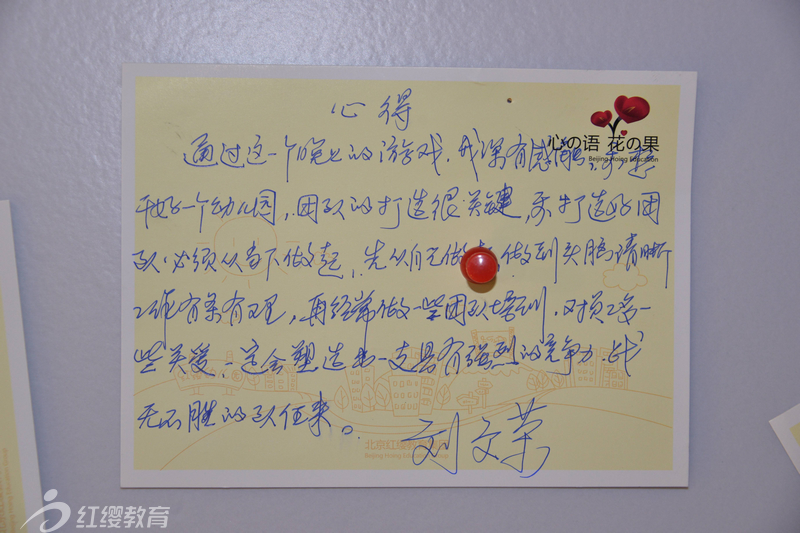 心得
心の语 花の果
Beijing Hoing Education
通过这一个晚上的游戏，我深有感触，要想
干好一个幼儿园，团队的打造很关键，要打造好团
队必须从当下做起，先从自己做，做到头脑清晰
工作有条有理，再经常做一些团队培训，对员工多一
些关爱，这会塑造出一支具有强烈的竞争力、战
无不胜的队伍来。
刘文荣
北京红缨教育
Beijing Hoing Education
红缨教育